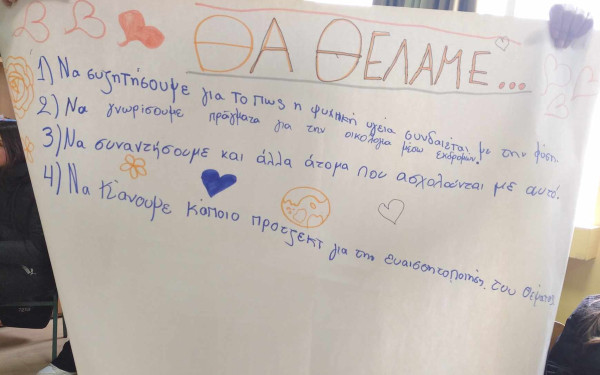 ΘΑ ΘΕΛΑΜΕ...
1) Να συζητήσουμε για το πως η ψυχική υγεία συνδιεται με την φύση.
2) Να γνωρίσουμε πράγματα για την οικολογία μέσω εκδρομών.
3) Να συναντήσουμε και άλλα άτομα που ασχολούνται με αυτό.
4) Να κάνουμε κάποιο πρότζεκτ για την ευαισθητοποίηση του θέματος